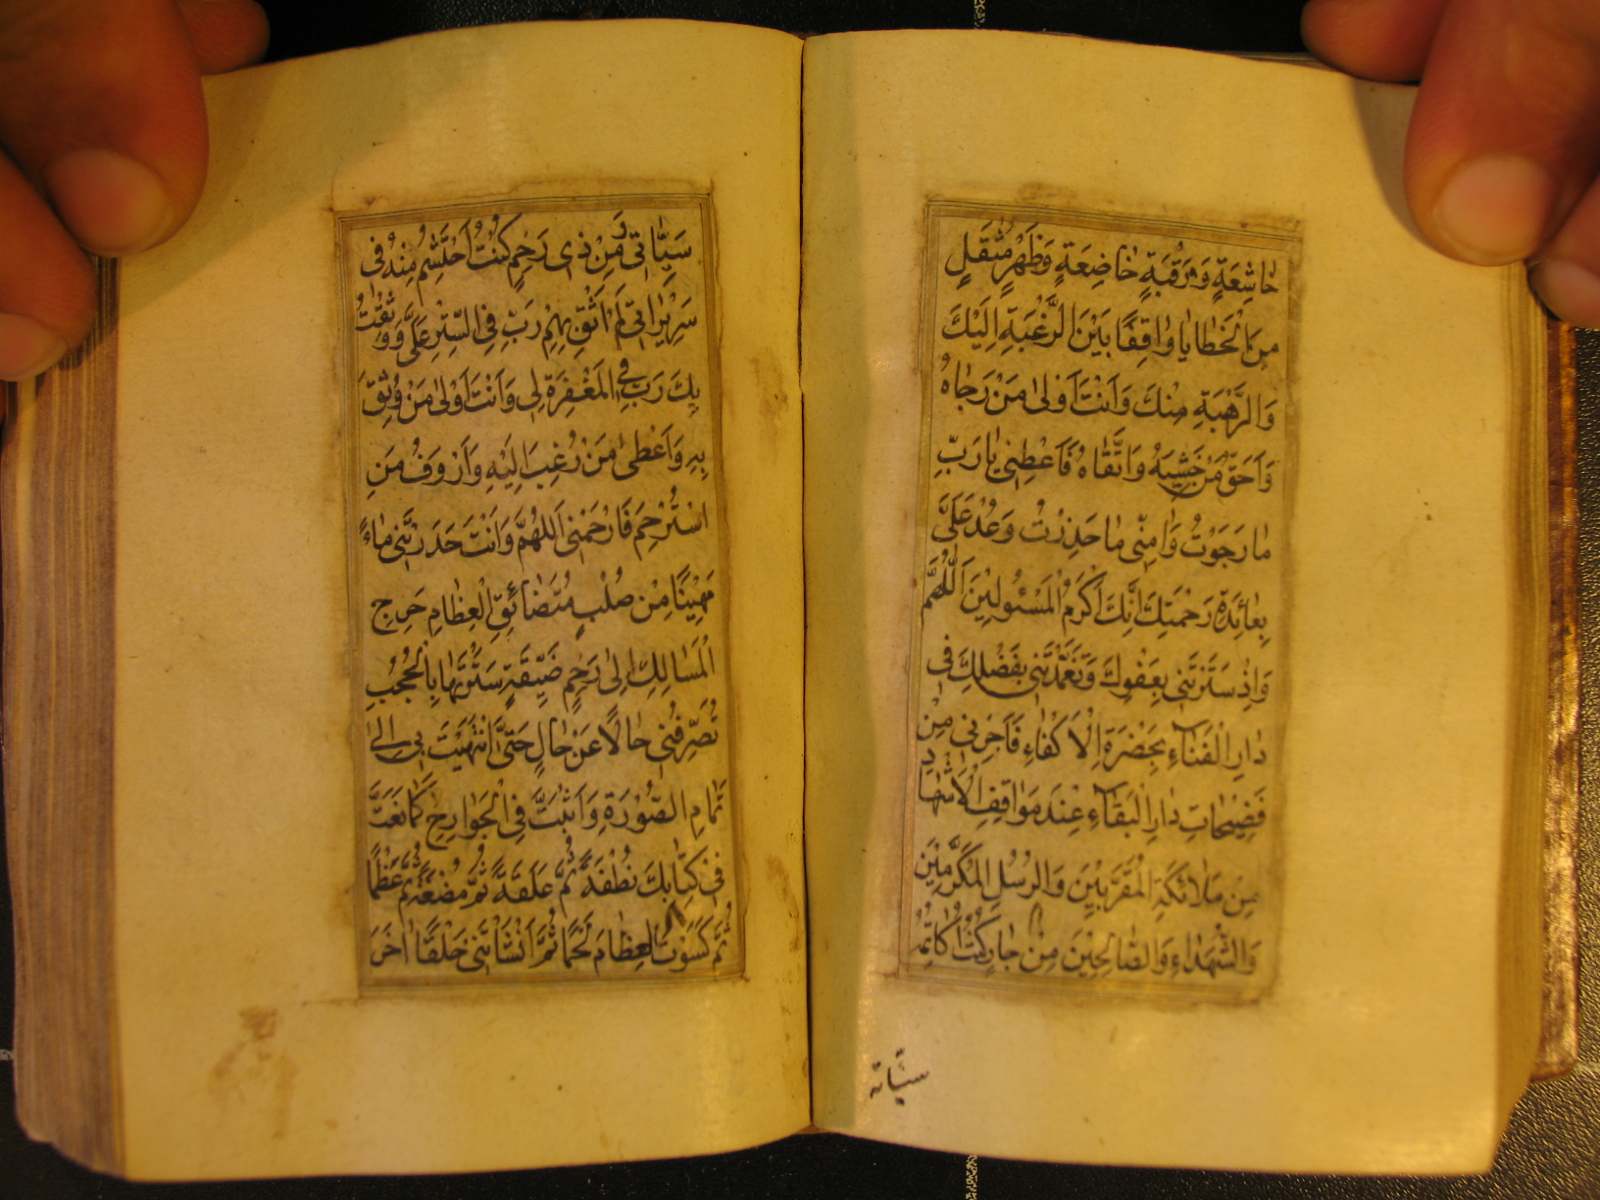 خاشِعَةٍ وَرَقَبَةٍ خاضِعَةٍ وَظَهْرٍ مُثْقَلٍ
مِنَ الْخَطايا واقِفًا بَيْنَ الرَّغْبَةِ اِلَيْكَ
وَالرَّهْبَةِ مِنْكَ وَاَنْتَ اَوْلىٰ مَنْ رَجاهُ
وَاَحَقُّ مَنْ خَشِيَهُ وَاتَّقاهُ فَاَعْطِنى يا رَبِّ
ما رَجَوْتُ وَامِنّى ما حَذِرْتُ وَعُدْ عَلَىَّ
بِعائِدَةِ رَحْمَتِكَ اِنَّكَ اَكْرَمُ الْمَسْئولينَ اَللّٰهُمَّ
وَاِذْ سَتَرْتَنى بِعَفْوِكَ وَتَغَمَّدْتَنى بِفَضْلِكَ فى
دارِ الْفَناءِ بِحَضْرَةِ الْاَكْفاءِ فَاَجِرْنى مِنْ
فَضيحاتِ دارِ الْبَقاءِ عِنْدَ مَواقِفِ الْاَشْهادِ
مِنْ مَلائِكَةِ الْمُقَرَّبينَ وَالرُّسُلِ الْمُكَرَّمينَ
وَالشُّهَداءِ وَالصّالِحينَ مِنْ جارٍ كُنْتُ اُكاتِمُهُ
سيّاته
سَيِّاٰتى وَمِنْ ذى رَحِمٍ كُنْتُ اَحْتَشِمُ مِنْهُ فى
سَريراتى لَمْ اَثِقْ بِهِمْ رَبِّ فِى السِّتْرِ عَلَىَّ وَوَثِقْتُ
بِكَ رَبِّ فِى الْمَغْفِرَةِ لى وَاَنْتَ اَوْلىٰ مَنْ وُثِقَ
بِهِ وَاَعْطىٰ مَنْ رُغِبَ اِلَيْهِ وَاَرْوَفُ مَنِ
اسْتُرْحِمَ فَارْحَمْنى اَللّٰهُمَّ وَاَنْتَ حَدَرْتَنى ماءً
مَهينًا مِنْ صُلْبٍ مُتَضائِقِ الْعِظامِ حَرِجِ
الْمَسالِكِ اِلىٰ رَحِمٍ ضَيِّقَةٍ سَتَرْتَها بِالْحُجُبِ
تُصَرِّفُنى حالًا عَنْ حالٍ حَتّىٰ انْتَهَيْتَ بى اِلىٰ
تَمامِ الصُّورَةِ وَاَثْبَتَّ فِى الْجَوارِحِ كَما نَعَتَّ
فى كِتابِكَ نُطْفَةً ثُمَّ عَلَقَةً ثُمَّ مُضْغَةً ثُمَّ عَظْمًا
ثُمَّ كَسَوْتَ الْعِظامَ لَحْمًا ثُمَّ اَنْشَاْتَنى خَلْقًا اخَرَ